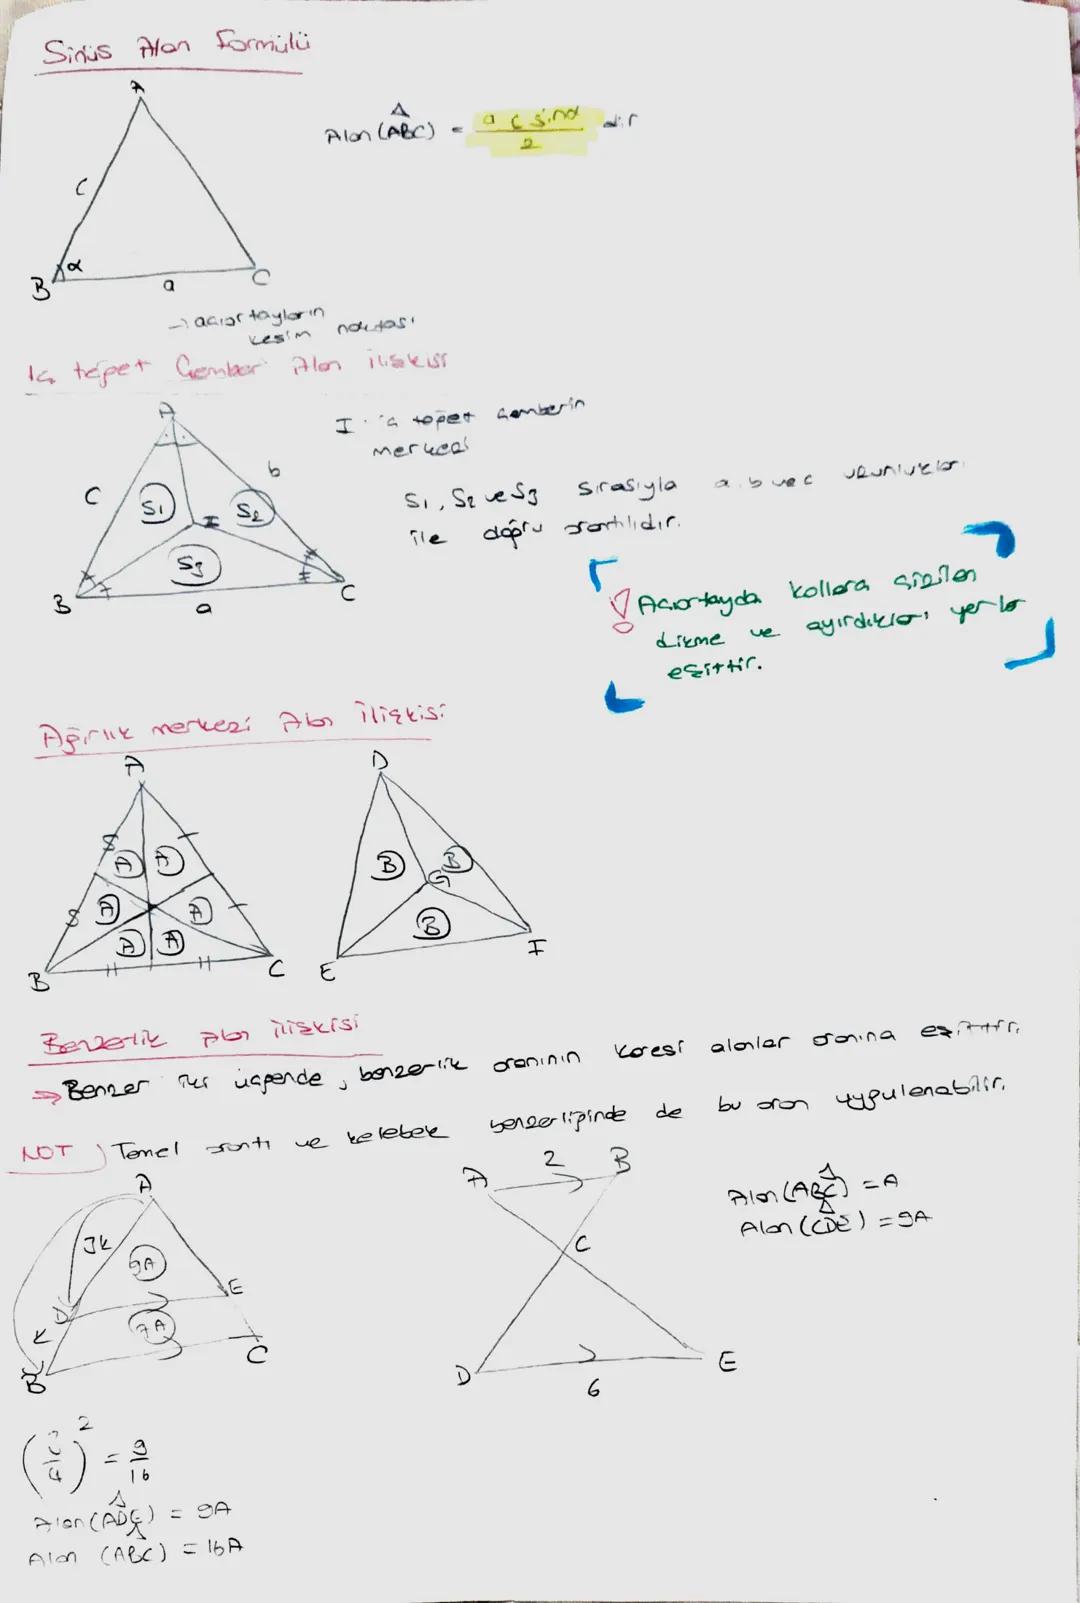 Sinüs Alan Formülü
A
Alan (ABC) = a c sinα / 2 dir
c
α
B
a
C
→ açıortayların
kesim noktası
İç teğet Çember Alan ilişkisi
A
I: iç teğet çemberin
merkezi
b
c
S1
S2
I
S1, S2 ve S3 sırasıyla a, b ve c uzunlukları
ile doğru orantılıdır.
S3
B
a
C
! Açıortayda kollara çizilen
dikme ve ayırdıkları yerler
eşittir.
Ağırlık merkezi Alan İlişkisi
A
D
S
A A
B B
G
S
A A
B
A A
B
C
E
I
Benzerlik Alan ilişkisi
⇒ Benzer iki üçgende, benzerlik oranının karesi alanlar oranına eşittir.
NOT) Temel orantı ve kelebek benzerliğinde de bu oran uygulanabilir.
A
A
2
B
Alan (ABC) = A
Alan (CDE) = 9A
3k
9A
C
D
E
k
7A
B
C
D
6
E
(3/4)² = 9/16
Alan (ADE) = 9A
Alan (ABC) = 16A